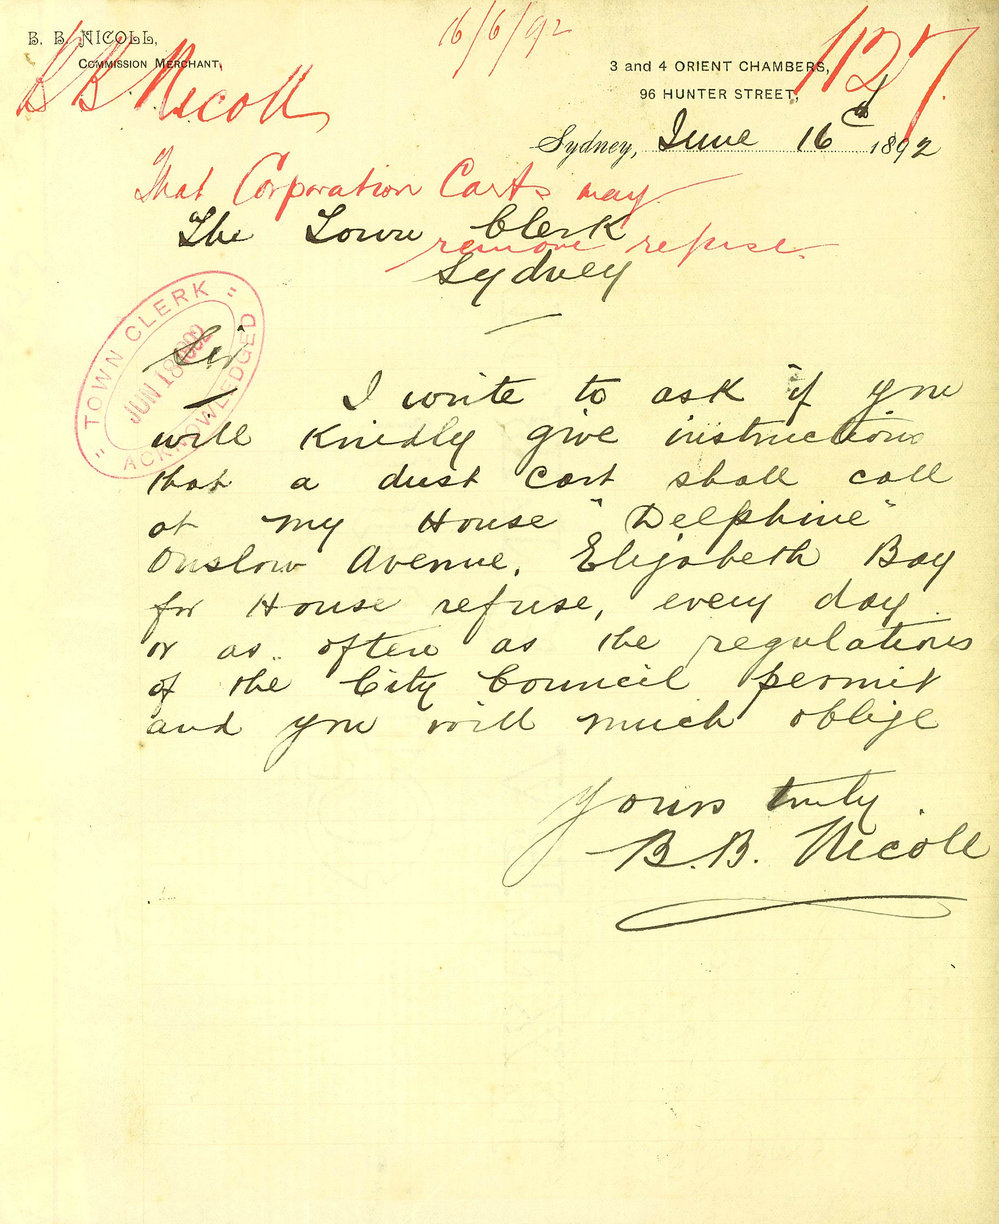 16/6/92
B. B. NICOLL,
COMMISSION MERCHANT,
B B Nicoll
3 and 4 ORIENT CHAMBERS,
96 HUNTER STREET,
1127
Sydney, June 16 1892
That Corporation Carts may
remove refuse.
The Town Clerk
Sydney
TOWN CLERK
JUN 18 1892
ACKNOWLEDGED
Sir
I write to ask if you
will kindly give instructions
that a dust cart shall call
at my House "Delphine"
Onslow Avenue, Elizabeth Bay
for House refuse, every day
or as often as the regulations
of the City Council permit
and you will much oblige
Yours truly.
B. B. Nicoll